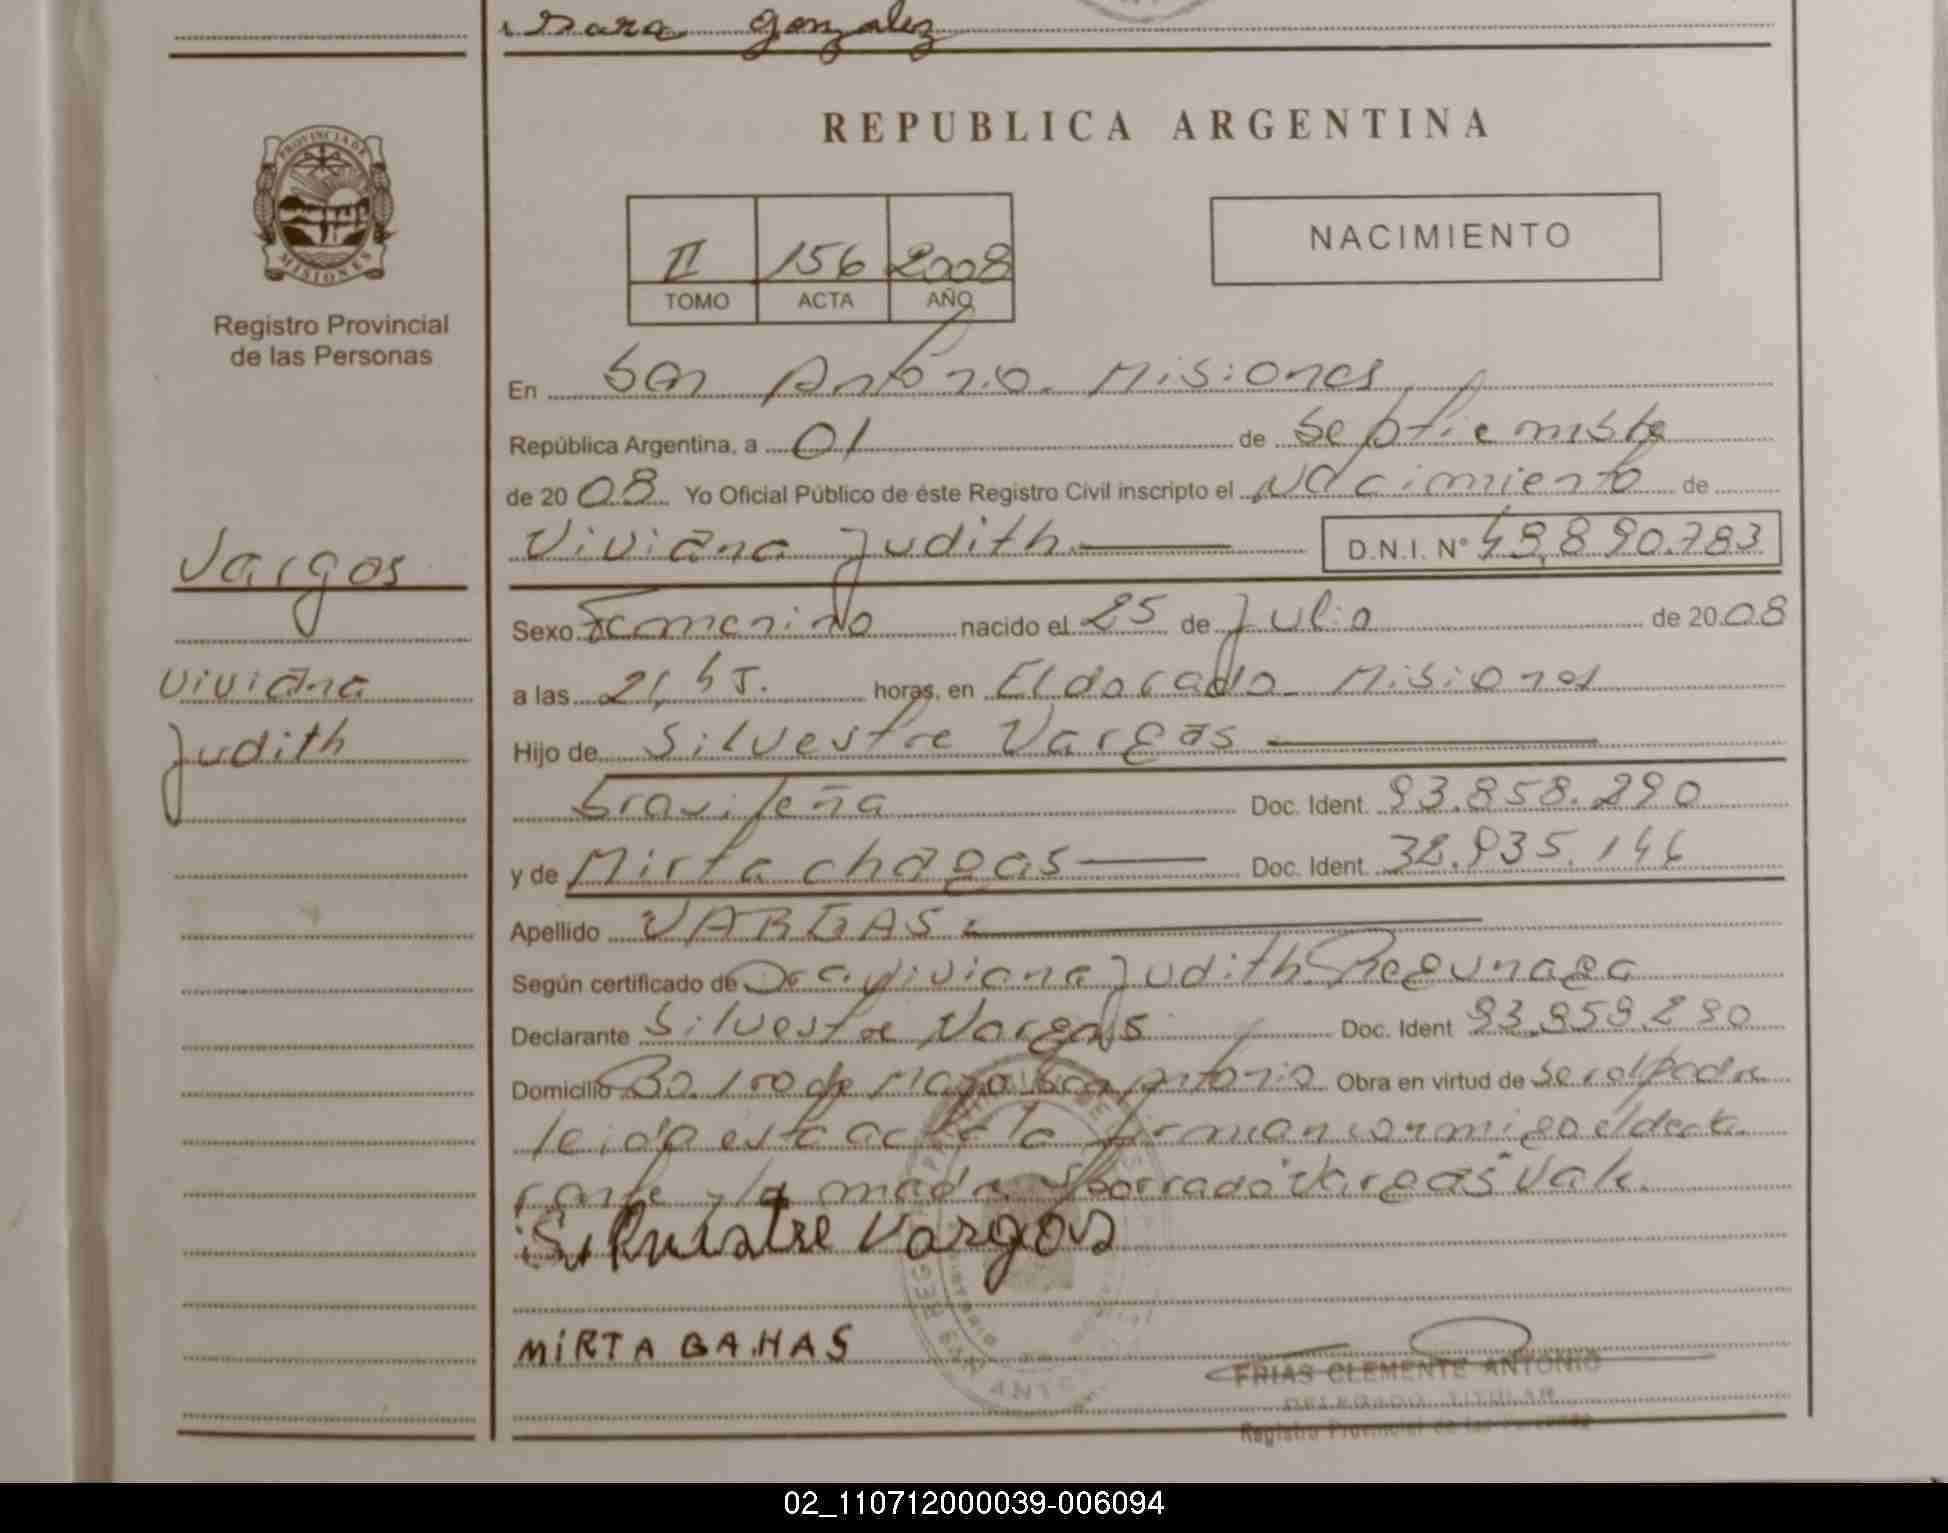 Sara Gonzalez
REPUBLICA ARGENTINA
PROVINCIA DE
MISIONES
Registro Provincial
de las Personas
II 156 2008
TOMO ACTA AÑO
NACIMIENTO
En San Antonio. Misiones
República Argentina, a 01 de Septiembre
de 2008 Yo Oficial Público de éste Registro Civil inscripto el Nacimiento de
Viviana Judith D.N.I. Nº 49.890.783
Vargas
Viviana
Judith
Sexo Femenino nacido el 25 de Julio de 2008
a las 21,45. horas, en Eldorado Misiones
Hijo de Silvestre Vargas
Brasileña Doc. Ident. 93.858.290
y de Mirta chagas Doc. Ident. 38.935.146
Apellido VARGAS
Según certificado de Dra. Viviana Judith
Declarante Silvestre Vargas Doc. Ident 93.858.290
Domicilio Bo. 1ro de Mayo San Antonio Obra en virtud de Ser el Padre
leida esta acta la firman conmigo el decla
rante y la madre Borrado "Vargas" Vale.
Silvestre Vargas
MIRTA GAHAS
FRIAS CLEMENTE ANTONIO
DELEGADO TITULAR
Registro Provincial de las Personas
02_110712000039-006094